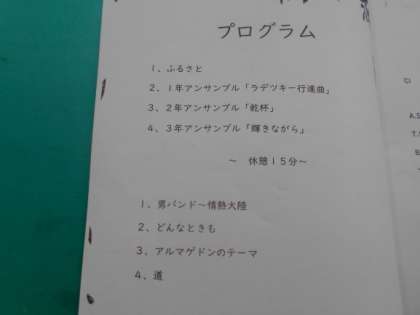 プログラム
１、ふるさと
２、１年アンサンブル「ラデツキー行進曲」
３、２年アンサンブル「乾杯」
４、３年アンサンブル「輝きながら」
～　休憩１５分～
１、男バンド～情熱大陸
２、どんなときも
３、アルマゲドンのテーマ
４、道